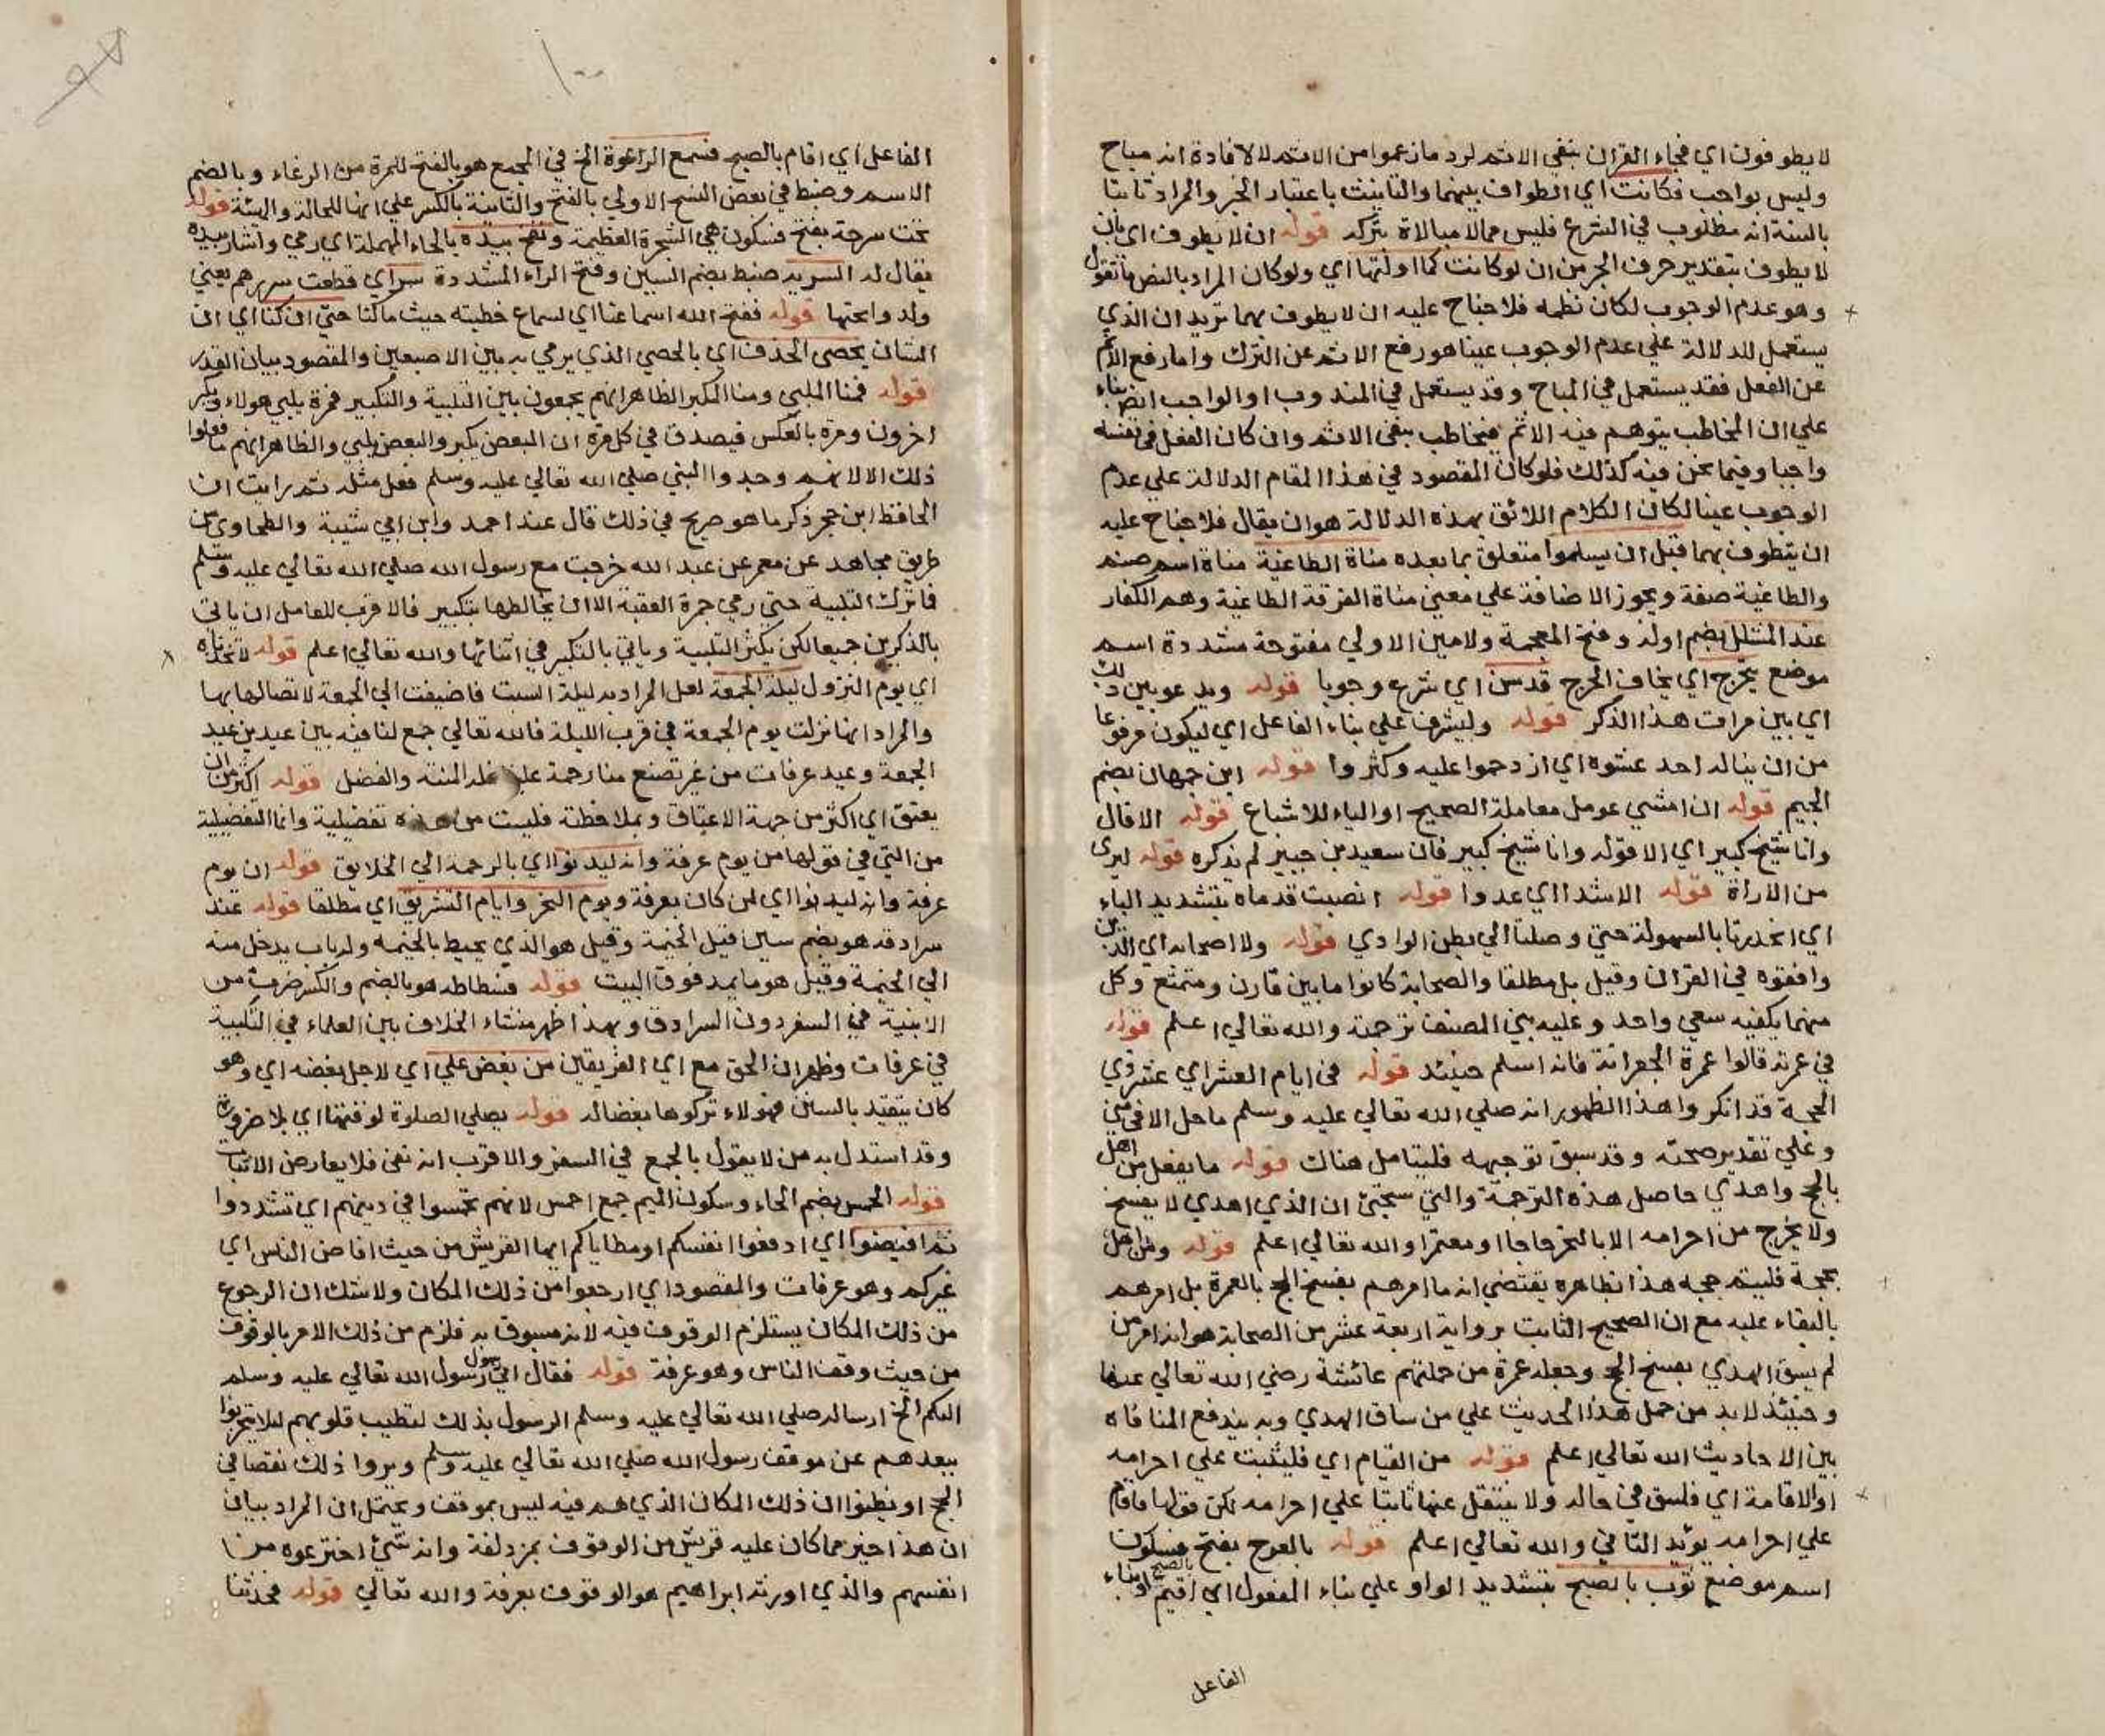 لا يطوفون اي فجاء القران بنفي الاثم لرد ما زعموا من الاثم لا لافادة انه مباح
وليس بواجب فكانت اي الطواف بينهما والتانيث باعتبار الخبر والمراد ثابتا
بالسنة انه مطلوب في الشرع فليس مما لا مبالاة بتركه قوله ان لا يطوف اي بان
لا يطوف بتقدير حرف الجر من ان لو كانت كما اولتها اي ولو كان المراد بالنص ما تقول
وهو عدم الوجوب لكان نظمه فلا جناح عليه ان لا يطوف بهما تريد ان الذي
يستعمل للدلالة علي عدم الوجوب عينا هو رفع الاثم عن الترك واما رفع الاثم
عن الفعل فقد يستعمل في المباح وقد يستعمل في المندوب او الواجب ايضا بناء
علي ان المخاطب يتوهم فيه الاثم فيخاطب بنفي الاثم وان كان الفعل في نفسه
واجبا وفيما نحن فيه كذلك فلو كان المقصود في هذا المقام الدلالة علي عدم
الوجوب عينا لكان الكلام اللائق بهذه الدلالة هو ان يقال فلا جناح عليه
ان يتطوف بهما قبل ان يسلموا متعلق بما بعده مناة الطاغية مناة اسم صنم
والطاغية صفة ويجوز الاضافة علي معني مناة الفرقة الطاغية وهم الكفار
عند المشلل بضم اوله وفتح المعجمة ولامين الاولي مفتوحة مشددة اسم
موضع يتحرج اي يخاف الحرج قد سن اي شرع وجوبا قوله ويدعو بين ذلك
اي بين مرات هذا الذكر قوله وليشرف علي بناء الفاعل اي ليكون مرفوعا
من ان يناله احد غشوه اي ازدحموا عليه وكثروا قوله ابن جمهان بضم
الجيم قوله ان امشي عومل معاملة الصحيح او الياء للاشباع قوله الا قال
وانا شيخ كبير اي الا قوله وانا شيخ كبير فان سعيد بن جبير لم يذكره قوله ليري
من الاراة قوله الا شدا اي عدوا قوله انصبت قدماه بتشديد الباء
اي انحدرتا بالسهولة حتي وصلتا الي بطن الوادي قوله ولا اصحابه اي الذين
وافقوه في القران وقيل بل مطلقا والصحابة كانوا ما بين قارن ومتمتع وكل
منهما يكفيه سعي واحد وعليه بني المصنف ترجمته والله تعالي اعلم قوله
في عمرته قالوا عمرة الجعرانة فانه اسلم حينئذ قوله في ايام العشر اي عشر ذي
الحجة قد انكروا هذا الظهور انه صلي الله تعالي عليه وسلم ما حل الا في مني
وعلي تقدير صحته وقد سبق توجيهه فليتامل هناك قوله ما يفعل من اهل
بالحج واهدي حاصل هذه الترجمة والتي ستجئ ان الذي اهدي لا يفسخ
ولا يخرج من احرامه الا بالنحر حاجا او معتمرا والله تعالي اعلم قوله ومن اهل
بحجة فليتم حجه هذا بظاهره يقتضي انه ما امرهم بفسخ الحج بالعمرة بل امرهم
بالبقاء عليه مع ان الصحيح الثابت برواية اربعة عشر من الصحابة هو انه امر من
لم يسق الهدي بفسخ الحج وجعله عمرة من جملتهم عائشة رضي الله تعالي عنها
وحينئذ لا بد من حمل هذا الحديث علي من ساق الهدي وبه يندفع المنافاة
بين الاحاديث الله تعالي اعلم قوله من القيام اي فليثبت علي احرامه
او الاقامة اي فليبق في حاله ولا ينتقل عنها ثابتا علي احرامه لكن قولها فاقام
علي احرامه يؤيد الثاني والله تعالي اعلم قوله بالعرج بفتح فسكون
اسم موضع ثوب بالصبح بتشديد الواو علي بناء المفعول اي اقيم بالصبح او بناء
الفاعل
١٠٠
الفاعل اي اقام بالصبح فسمع الرغوة الخ في المجمع هو بالفتح للمرة من الرغاء وبالضم
الاسم وضبط في بعض النسخ الاولي بالفتح والثانية بالكسر علي انها للحالة والهيئة قوله
تحت سرحة بفتح فسكون هي الشجرة العظيمة ونفح بيده بالحاء المهملة اي رمي واشار بيده
يقال له السربه ضبط بضم السين وفتح الراء المشددة سر اي قطعت سررهم يعني
ولدوا تحتها قوله ففتح الله اسماعنا اي لسماع خطبته حيث ما كنا حتي ان كنا اي ان
الشان بحصي الخذف اي بالحصي الذي يرمي به بين الاصبعين والمقصود بيان القدر
قوله فمنا الملبي ومنا المكبر الظاهر انهم يجمعون بين التلبية والتكبير فمرة يلبي هولاء ويكبر
اخرون ومرة بالعكس فيصدق في كل مرة ان البعض يكبر والبعض يلبي والظاهر انهم ما فعلوا
ذلك الا لانهم وجدوا النبي صلي الله تعالي عليه وسلم فعل مثله ثم رايت ان
الحافظ ابن حجر ذكر ما هو صريح في ذلك قال عند احمد وابن ابي شيبة والطحاوي من
طريق مجاهد عن معمر عن عبد الله خرجت مع رسول الله صلي الله تعالي عليه وسلم
فما ترك التلبية حتي رمي جمرة العقبة الا ان يخالطها بتكبير فالاقرب للعامل ان ياتي
بالذكرين جميعا لكن يكثر التلبية وياتي بالتكبير في اثنائها والله تعالي اعلم قوله لاتخذناه
اي يوم النزول ليلة الجمعة لعل المراد به ليلة السبت فاضيفت الي الجمعة لاتصالها بها
والمراد انها نزلت يوم الجمعة في قرب الليلة فالله تعالي جمع لنا فيه بين عيدين عيد
الجمعة وعيد عرفات من غير تصنع منا رحمة علينا فله المنة والفضل قوله اكثر من ان
يعتق اي اكثر من جهة الاعتاق وبملاحظته فليست من هذه تفضيلية وانما التفضيلية
من التي في قولها من يوم عرفة وانه ليدنوا اي بالرحمة الي الخلايق قوله ان يوم
عرفة وانه ليدنوا اي لمن كان بعرفة ويوم النحر وايام التشريق اي مطلقا قوله عند
سرادقه هو بضم سين قيل الخيمة وقيل هو الذي يحيط بالخيمة وله باب يدخل منه
الي الخيمة وقيل هو ما يمد فوق البيت قوله فسطاطه هو بالضم والكسر ضرب من
الابنية في السفر دون السرادق وبهذا ظهر منشاء الخلاف بين العلماء في التلبية
في عرفات وظهر ان الحق مع اي الفريقين من بغض علي اي لاجل بغضه اي وهو
كان يتقيد بالسنن فهولاء تركوها بغضا له قوله يصلي الصلوة لوقتها اي بلا ضرورة
وقد استدل به من لا يقول بالجمع في السفر والاقرب انه نفي فلا يعارض الاثبات
قوله الحمس بضم الحاء وسكون الميم جمع احمس لانهم تحمسوا في دينهم اي تشددوا
ثم افيضوا اي ادفعوا انفسكم او مطاياكم ايها القريش من حيث افاض الناس اي
غيركم وهو عرفات والمقصود اي ارجعوا من ذلك المكان ولا شك ان الرجوع
من ذلك المكان يستلزم الوقوف فيه لانه مسبوق به فلزم من ذلك الامر بالوقوف
من حيث وقف الناس وهو عرفة قوله فقال اني رسول رسول الله تعالي عليه وسلم
اليكم الخ ارساله صلي الله تعالي عليه وسلم الرسول بذلك لتطيب قلوبهم لئلا يتحزنوا
ببعدهم عن موقف رسول الله صلي الله تعالي عليه وسلم ويروا ذلك نقصا في
الحج او يظنوا ان ذلك المكان الذي هم فيه ليس بموقف ويحتمل ان المراد بيان
ان هذا خير مما كان عليه قريش من الوقوف بمزدلفة وانه شئ اخترعوه من
انفسهم والذي اورثه ابراهيم هو الوقوف بعرفة والله تعالي قوله فحدثنا